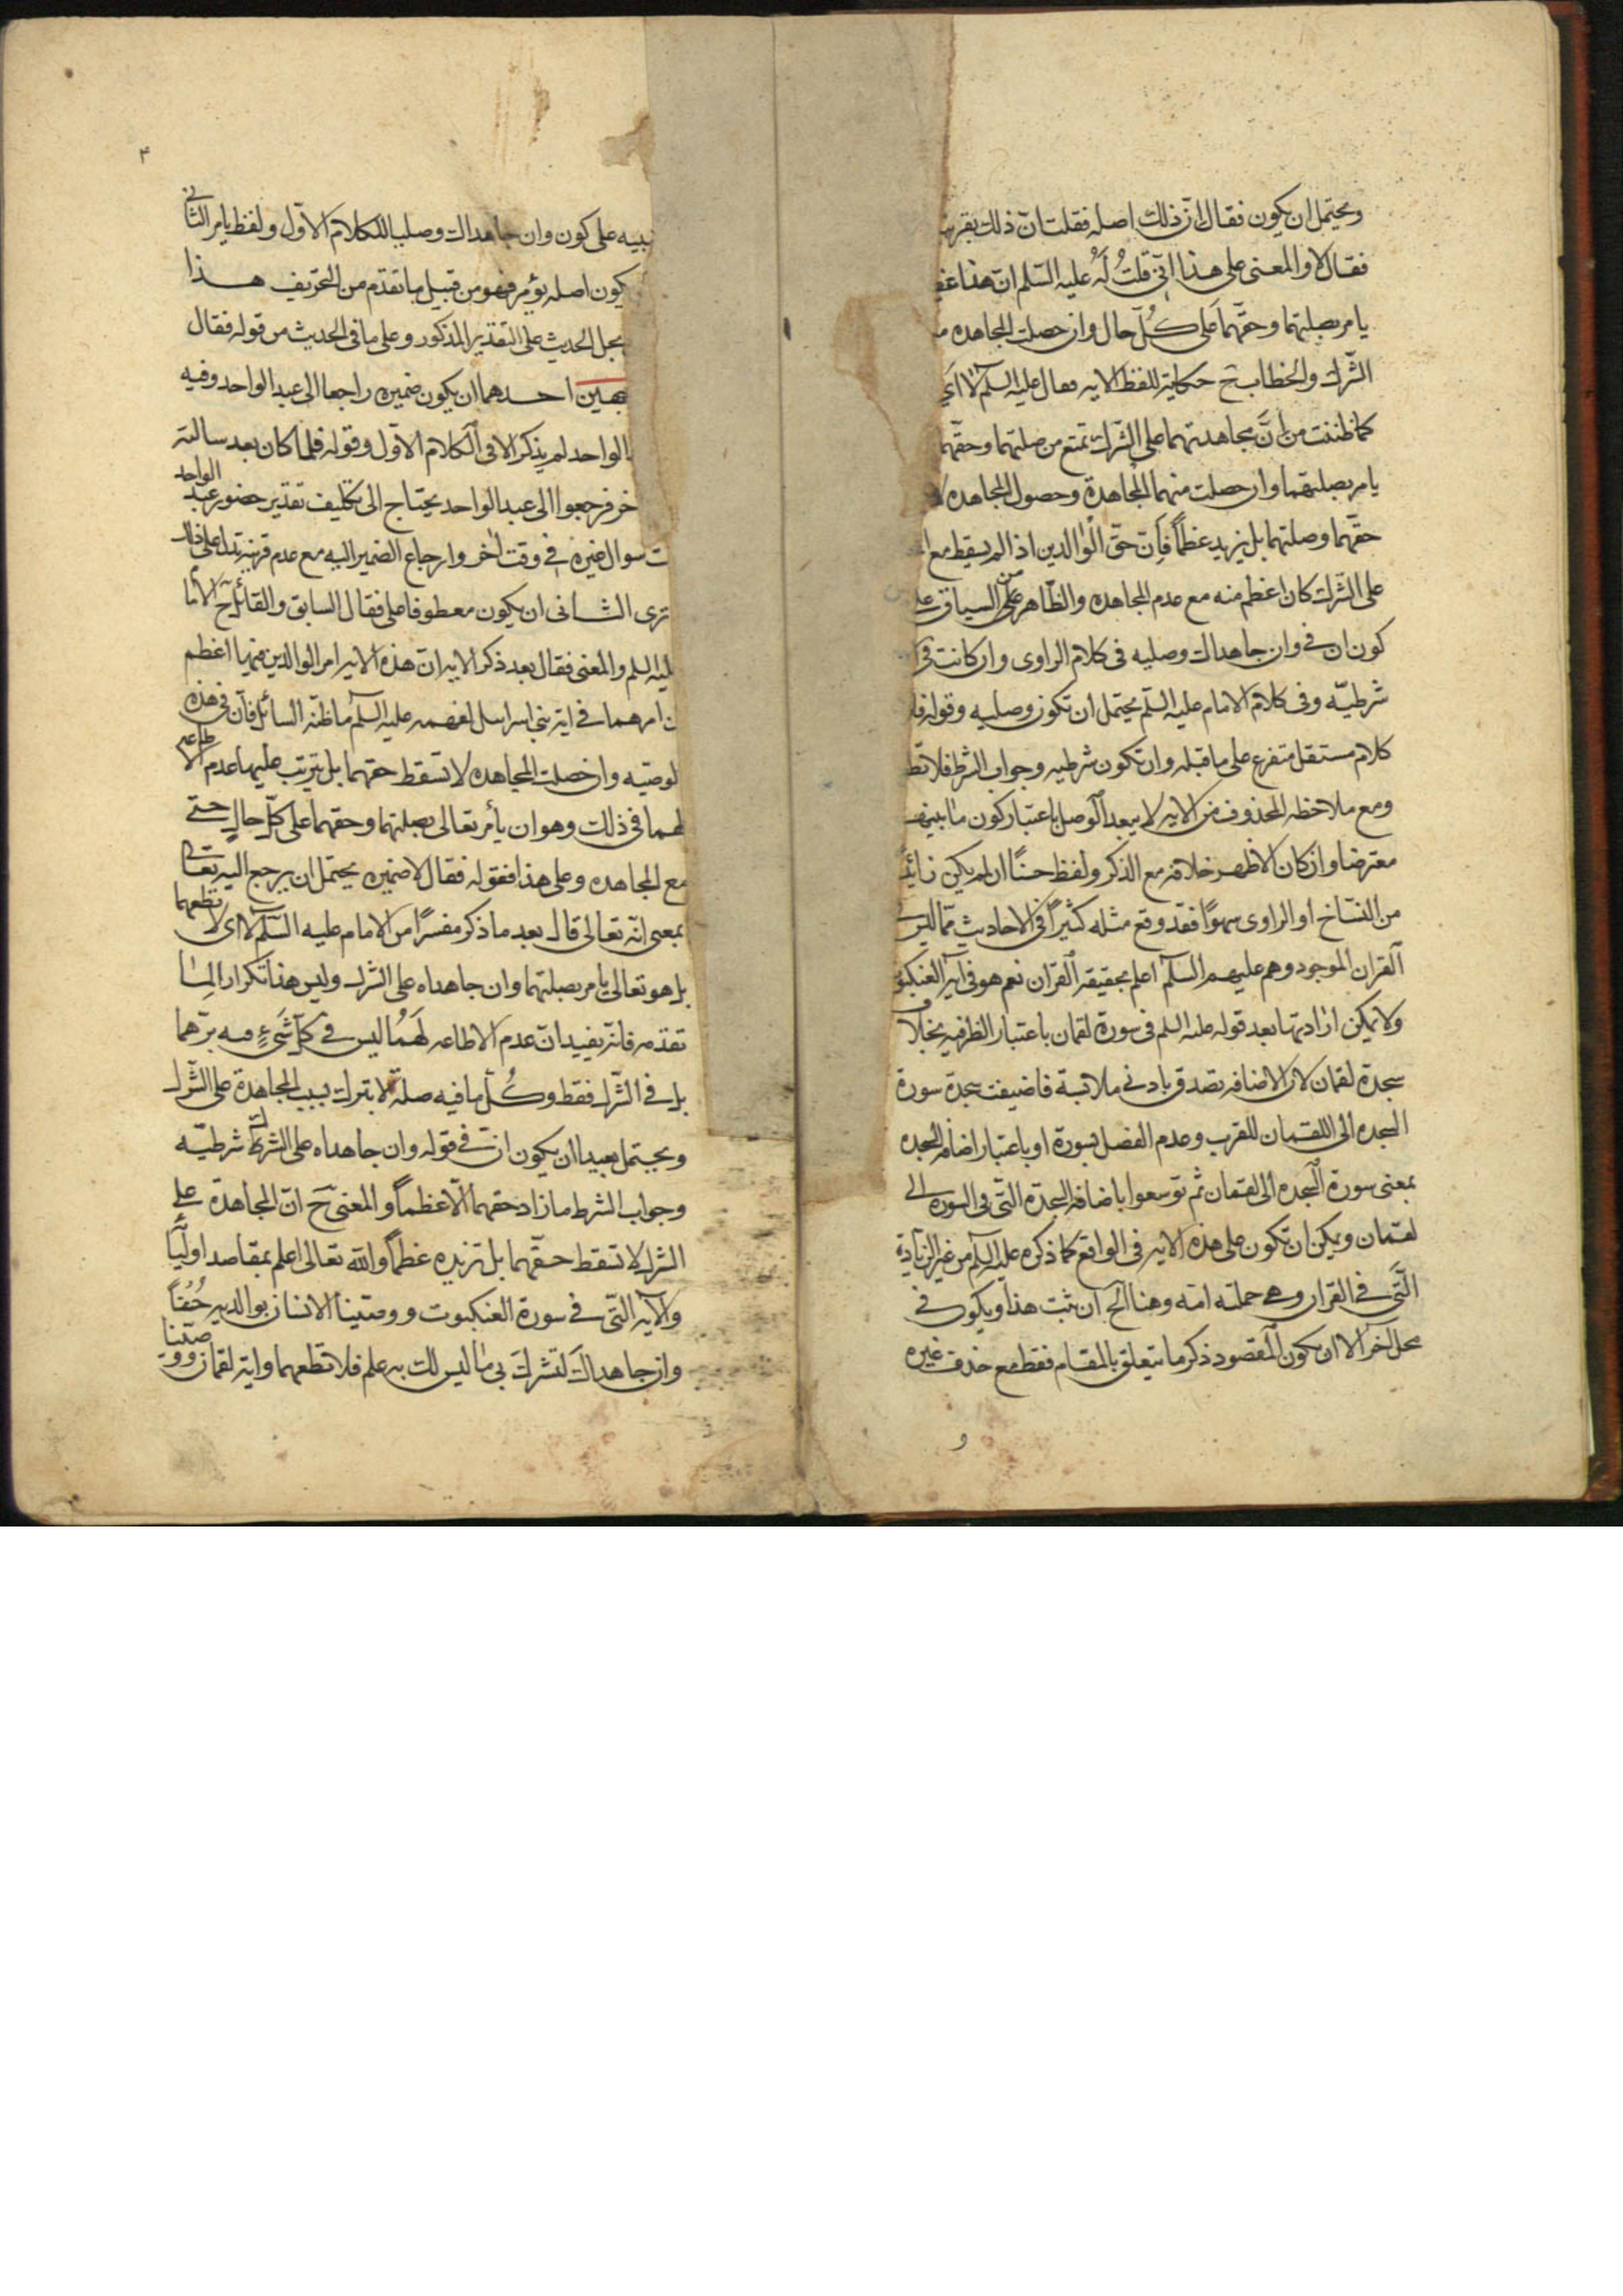 ويحتمل ان يكون فقال ان ذلك اصله فقلت ان ذلك بقرينة
فقال لا والمعنى على هذا انى قلت له عليه السلم ان هذا
يامر بصلتهما وحقهما على كل حال وان حصلت المجاهده
الشرك والخطاب ح حكاية للفظ الايه فقال عليه السلم لا اى
كما ظننت من ان مجاهدتهما على الشرك تمنع من صلتهما وحقهما
يامر بصلتهما وان حصلت منهما المجاهدة وحصول المجاهده لا
حقهما وصلتهما بل يزيد عظما فان حق الوالدين اذا لم يسقط مع
على الشرك كان اعظم منه مع عدم المجاهده والظاهر من السياق
كون ان في وان جاهداك وصليه فى كلام الراوى وان كانت فى
شرطيه وفى كلام الامام عليه السلم يحتمل ان تكون وصليه وقوله فلا
كلام مستقل متفرع على ما قبله وان تكون شرطيه وجواب الشرط فلا تطع
ومع ملاحظه المحذوف من الايه لا يبعد الوصل باعتبار كون ما بينهما
معترضا وان كان الاظهر خلافه مع الذكر ولفظ حسنا ان لم يكن زائدا
من النساخ او الراوى سهوا فقد وقع مثله كثيرا فى الاحاديث مما ليس
القران الموجود وهم عليهم السلم اعلم بحقيقة القران نعم هو فى اية العنكبوت
ولا يمكن ارادتها بعد قوله عليه السلم فى سورة لقمان باعتبار الظرفيه بخلاف
سجدة لقمان لان الاضافه تصدق بادنى ملابسة فاضيفت سجدة سورة
السجده الى اللقمان للقرب وعدم الفصل بسورة او باعتبار اضافه السجده
بمعنى سورة السجده الى لقمان ثم توسعوا باضافه السجدة التى فى السوره الى
لقمان ويمكن ان تكون على هذه الايه فى الواقع كما ذكره عليه السلم من غير الزيادة
التى في القران وهى حملته امه وهنا الخ ان ثبت هذا ويكون في
محل اخر الا ان يكون المقصود ذكر ما يتعلق بالمقام فقط مع حذف غيره
و
٣
تنبيه على كون وان جاهداك وصليا للكلام الاول ولفظ يامر الثانى
يكون اصله يؤمر فهو من قبيل ما تقدم من التحريف هذا
مجمل الحديث على التقدير المذكور وعلى ما فى الحديث من قوله فقال
احدهما ان يكون ضميره راجعا الى عبد الواحد وفيه
الواحد لم يذكر الا فى الكلام الاول وقوله فلما كان بعد سالته
فرجعوا الى عبد الواحد يحتاج الى تكليف تقدير حضور عبد الواحد
سوال غيره في وقت اخر وارجاع الضمير اليه مع عدم قرينة تدل على ذلك
ترى الثانى ان يكون معطوفا على فقال السابق والقائل ح الاما
عليه السلم والمعنى فقال بعد ذكر الايه ان هذه الايه امر الوالدين فيها اعظم
من امرهما في اية بنى اسرائيل لفهمه عليه السلم ما ظنه السائل فان في هذه
الوصيه وان حصلت المجاهده لا تسقط حقهما بل يترتب عليها عدم الاطاعه
لهما في ذلك وهو ان يأمر تعالى بصلتهما وحقهما على كل حال حتى
مع المجاهده وعلى هذا فقوله فقال لا ضميره يحتمل ان يرجع اليه تعالى
بمعنى انه تعالى قال بعد ما ذكر مفسرا من الامام عليه السلم لا اى لا تطعهما
بل هو تعالى يامر بصلتهما وان جاهداه على الشرك وليس هذا تكرارا لما
تقدم فانه يفيد ان عدم الاطاعه لهما ليس فى كل شىء فيه برهما
بل في الشرك فقط وكل ما فيه صلة لا يترك بسبب المجاهدة على الشرك
ويحتمل بعيدا ان يكون ان في قوله وان جاهداه على الشرك شرطيه
وجواب الشرط ما زاد حقهما الا عظما والمعنى ح ان المجاهدة على
الشرك لا تسقط حقهما بل تزيده عظما والله تعالى اعلم بمقاصد اوليا
والآيه التى في سورة العنكبوت ووصينا الانسان بوالديه حسنا
وان جاهداك لتشرك بى ما ليس لك به علم فلا تطعهما واية لقمان ووصينا